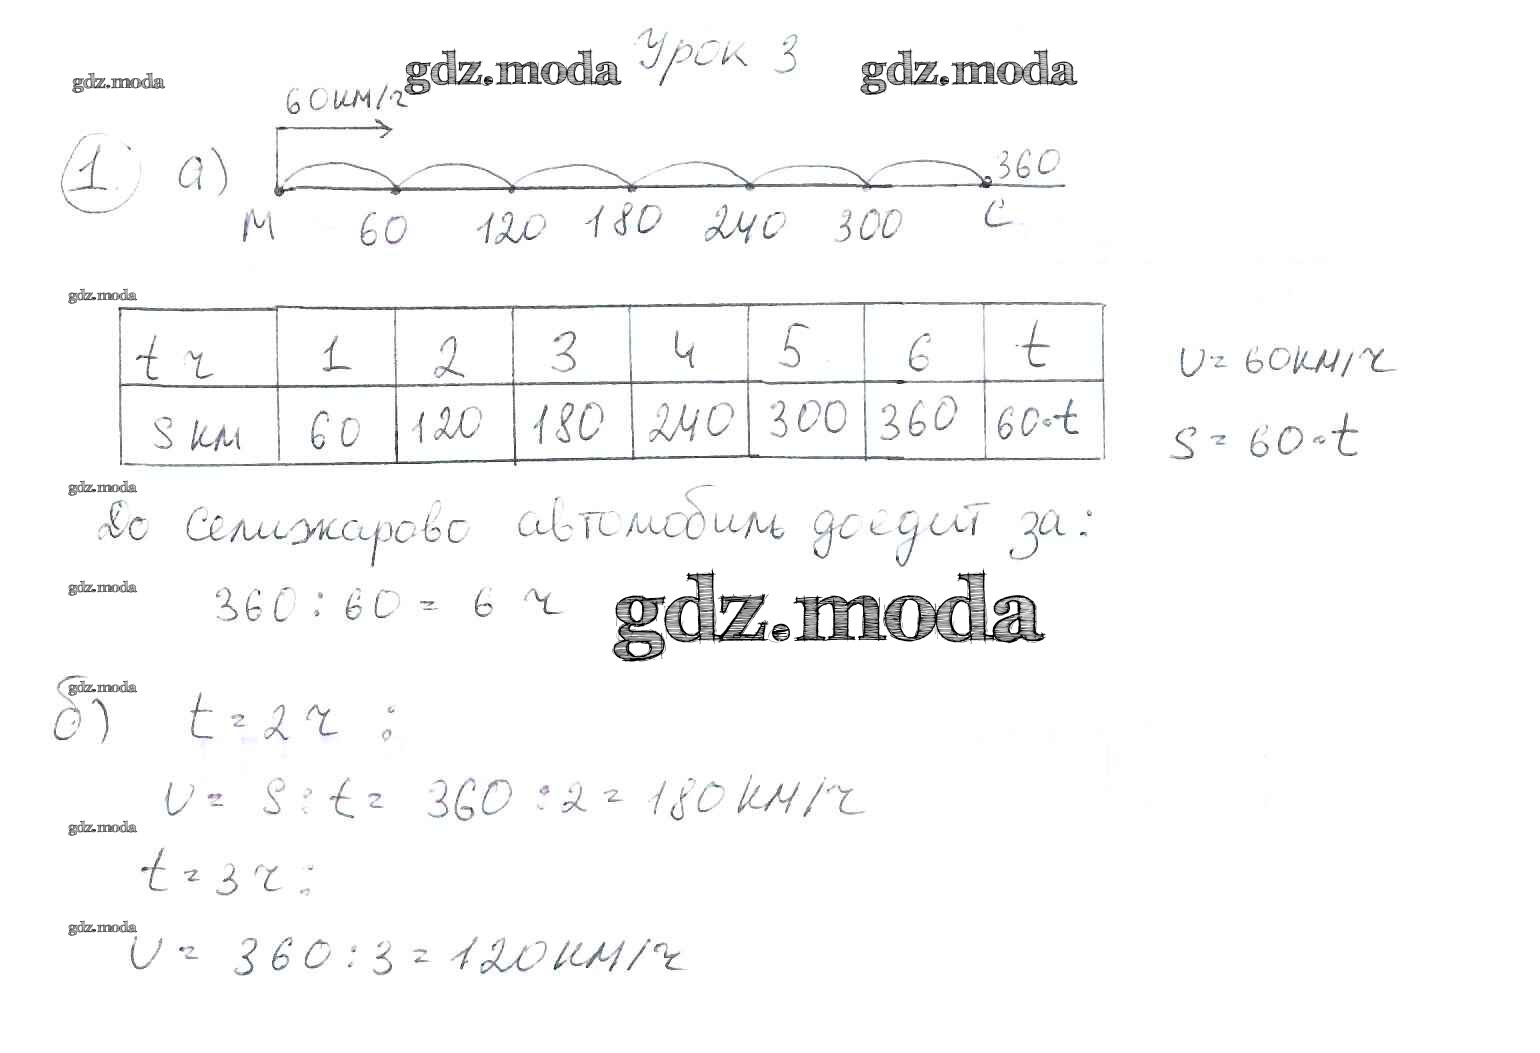 Урок 3
gdz.moda gdz.moda gdz.moda
60км/ч
1. а)
360
М 60 120 180 240 300 С
gdz.moda
t ч 1 2 3 4 5 6 t
S км 60 120 180 240 300 360 60·t
υ = 60км/ч
S = 60·t
gdz.moda
До Селижарово автомобиль доедит за:
gdz.moda
360 : 60 = 6 ч
gdz.moda
gdz.moda
б) t = 2 ч :
υ = S : t = 360 : 2 = 180 км/ч
gdz.moda
t = 3 ч :
gdz.moda
υ = 360 : 3 = 120 км/ч